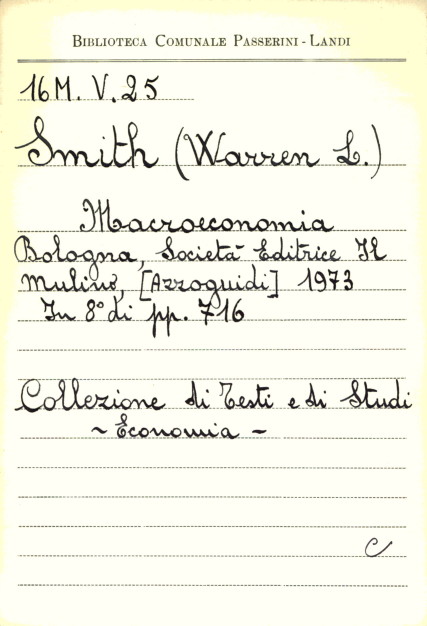 BIBLIOTECA COMUNALE PASSERINI - LANDI
16 M. V. 25
Smith (Warren L.)
Macroeconomia
Bologna, Società Editrice Il
Mulino, [Azzoguidi] 1973
In 8° di pp. 716
Collezione di Testi e di Studi
~ Economia ~
C